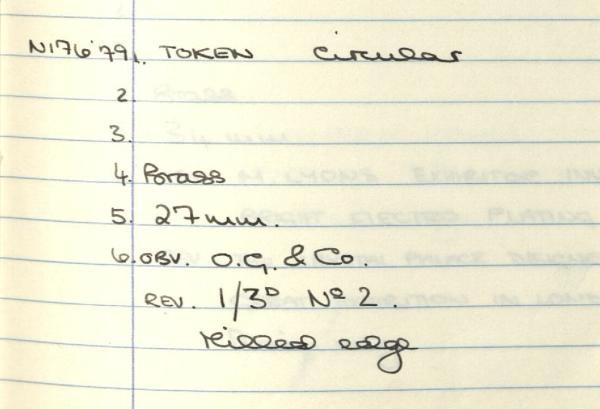 N176'79 1. TOKEN circular
2.
3.
4. Brass
5. 27mm.
6. OBV. O.G. & Co.
REV. 1/3ᴰ Nº 2.
Milled edge